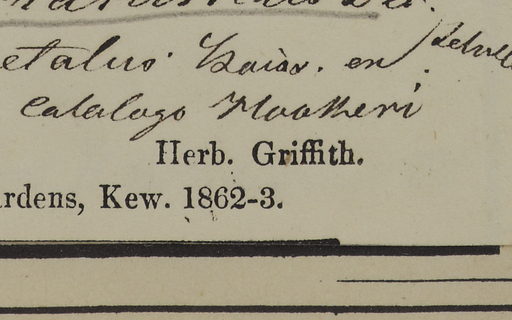 etalus Boiss. en
Catalogo Hookeri
Herb. Griffith.
rdens, Kew. 1862-3.